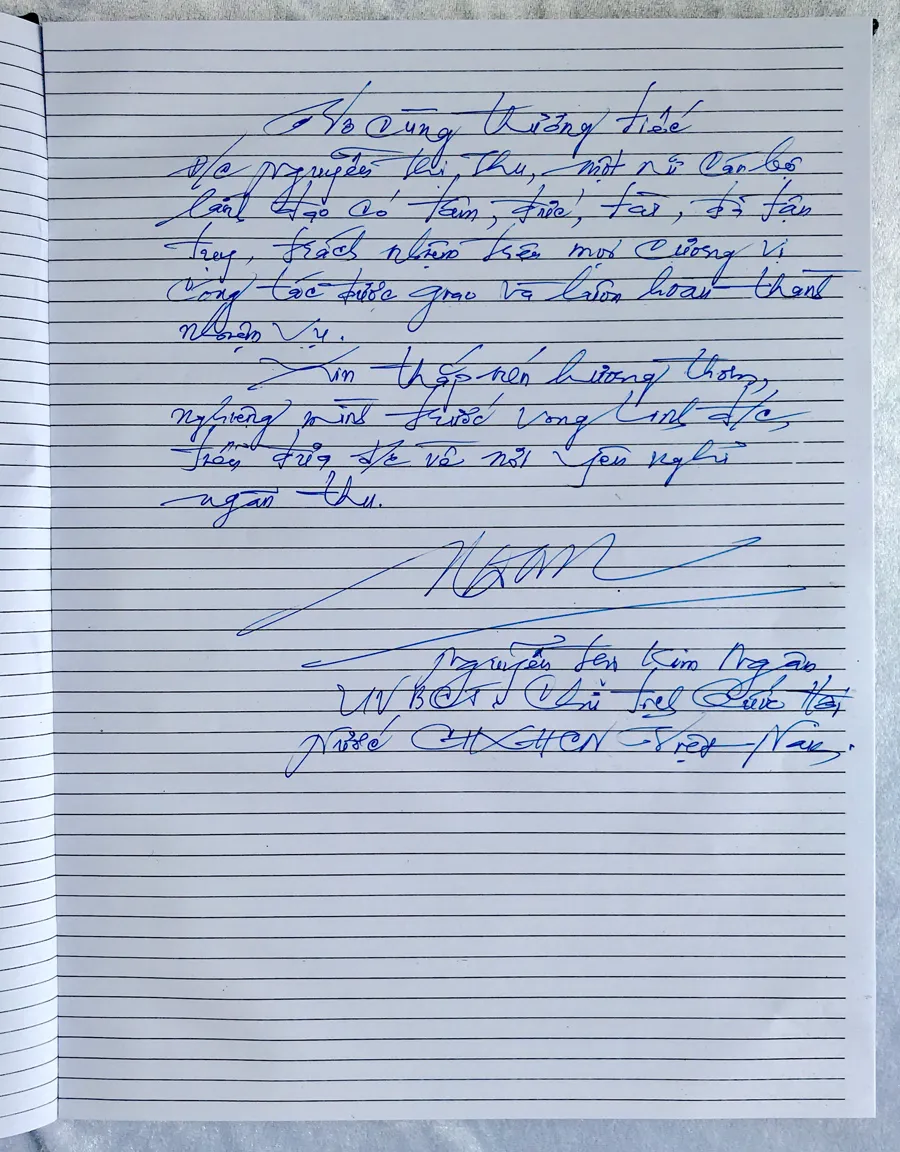 Vô cùng thương tiếc
đ/c Nguyễn Thị Thu, một nữ cán bộ
lãnh đạo có tâm, đức, tài, đã tận
tụy, trách nhiệm trên mọi cương vị
công tác được giao và luôn hoàn thành
nhiệm vụ.
Xin thắp nén hương thơm,
nghiêng mình trước vong linh đ/c,
tiễn đưa đ/c về nơi yên nghỉ
ngàn thu.
Ngân
Nguyễn Thị Kim Ngân
UVBCT, Chủ tịch Quốc Hội
Nước CHXHCN Việt Nam.